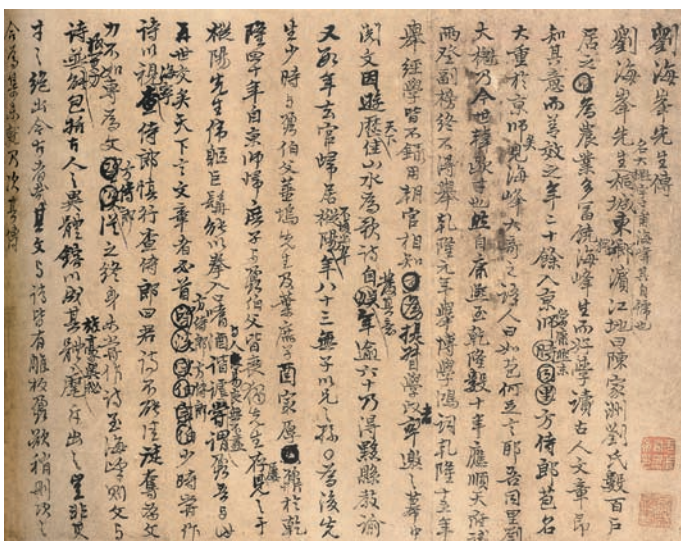 劉海峯先生傳
劉海峯先生名大櫆字才甫海峯其自號也桐城東鄉濱江地曰陳家洲劉氏數百戶
居之為農業多富饒海峰生而好學讀古人文章即
知其意而善效之年二十餘入京師當康熙末方侍郎苞名
大重於京師矣見海峰大奇之語人曰如苞何足言耶吾同里劉
大櫆乃今世韓歐才也自康熙至乾隆數十年應順天府試
兩登副榜終不得舉乾隆元年舉博學鴻詞乾隆十五年
舉經學皆不錄用朝官相知提督學政者率邀之幕中
閱文因遊歷天下佳山水為歌詩自發其意年逾六十乃得黟縣教諭
又數年去官歸居樅陽不復出年八十三無子以兄之孫口為後先
生少時與鼐伯父薑塢先生及葉庶子酉最厚鼐於乾
隆四十年自京師歸庶子與鼐伯父皆喪獨先生存屢見之于
樅陽先生偉軀巨髯能以拳入口嗜酒諧謔與人易良無不盡嘗謂鼐吾與汝
再世交矣天下言文章者必首方侍郎方侍郎少時嘗作
詩以視海寧查侍郎慎行查侍郎曰君詩不能佳徒奪為文
力不如專為文方侍郎從之終身未嘗作詩至海峰則文與
詩並極其力能包括古人之異體鎔以成其體雄豪奧秘麾斥出之豈非其
才之絕出今古者哉其文與詩皆有雕板鼐欲稍刪次之
合為集未就乃次其傳